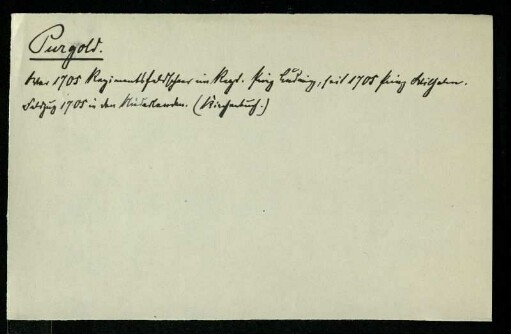 Purgold.
War 1705 Regimentsfeldscheer im Regt. Prinz Ludwig, seit 1705 Prinz Wilhelm.
Feldzug 1705 in den Niederlanden. (Kirchenbuch.)